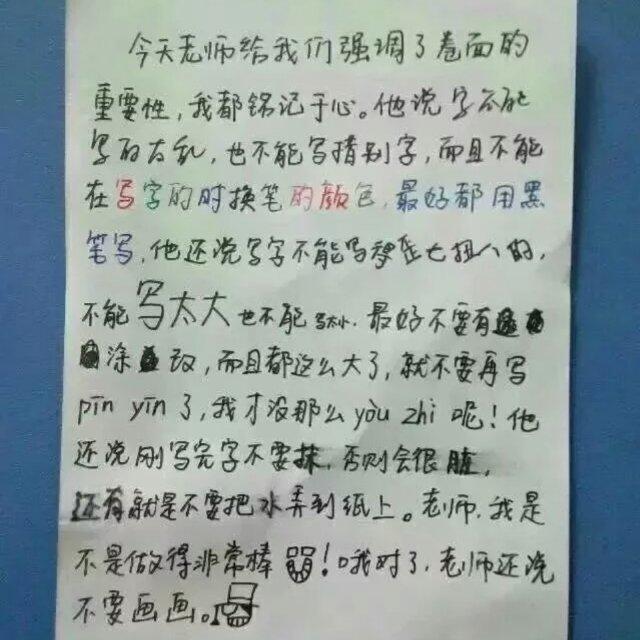 今天老师给我们强调了卷面的
重要性，我都铭记于心。他说字不能
写的太乱，也不能写错别字，而且不能
在写字的时换笔的颜色，最好都用黑
笔写，他还说写字不能写歪七扭八的，
不能写太大也不能写太小．最好不要有
涂改，而且都这么大了，就不要再写
pīn yīn了，我才没那么yòu zhì呢！他
还说刚写完字不要抹，否则会很脏，
还有就是不要把水弄到纸上。老师，我是
不是做得非常棒！哦对了，老师还说
不要画画。